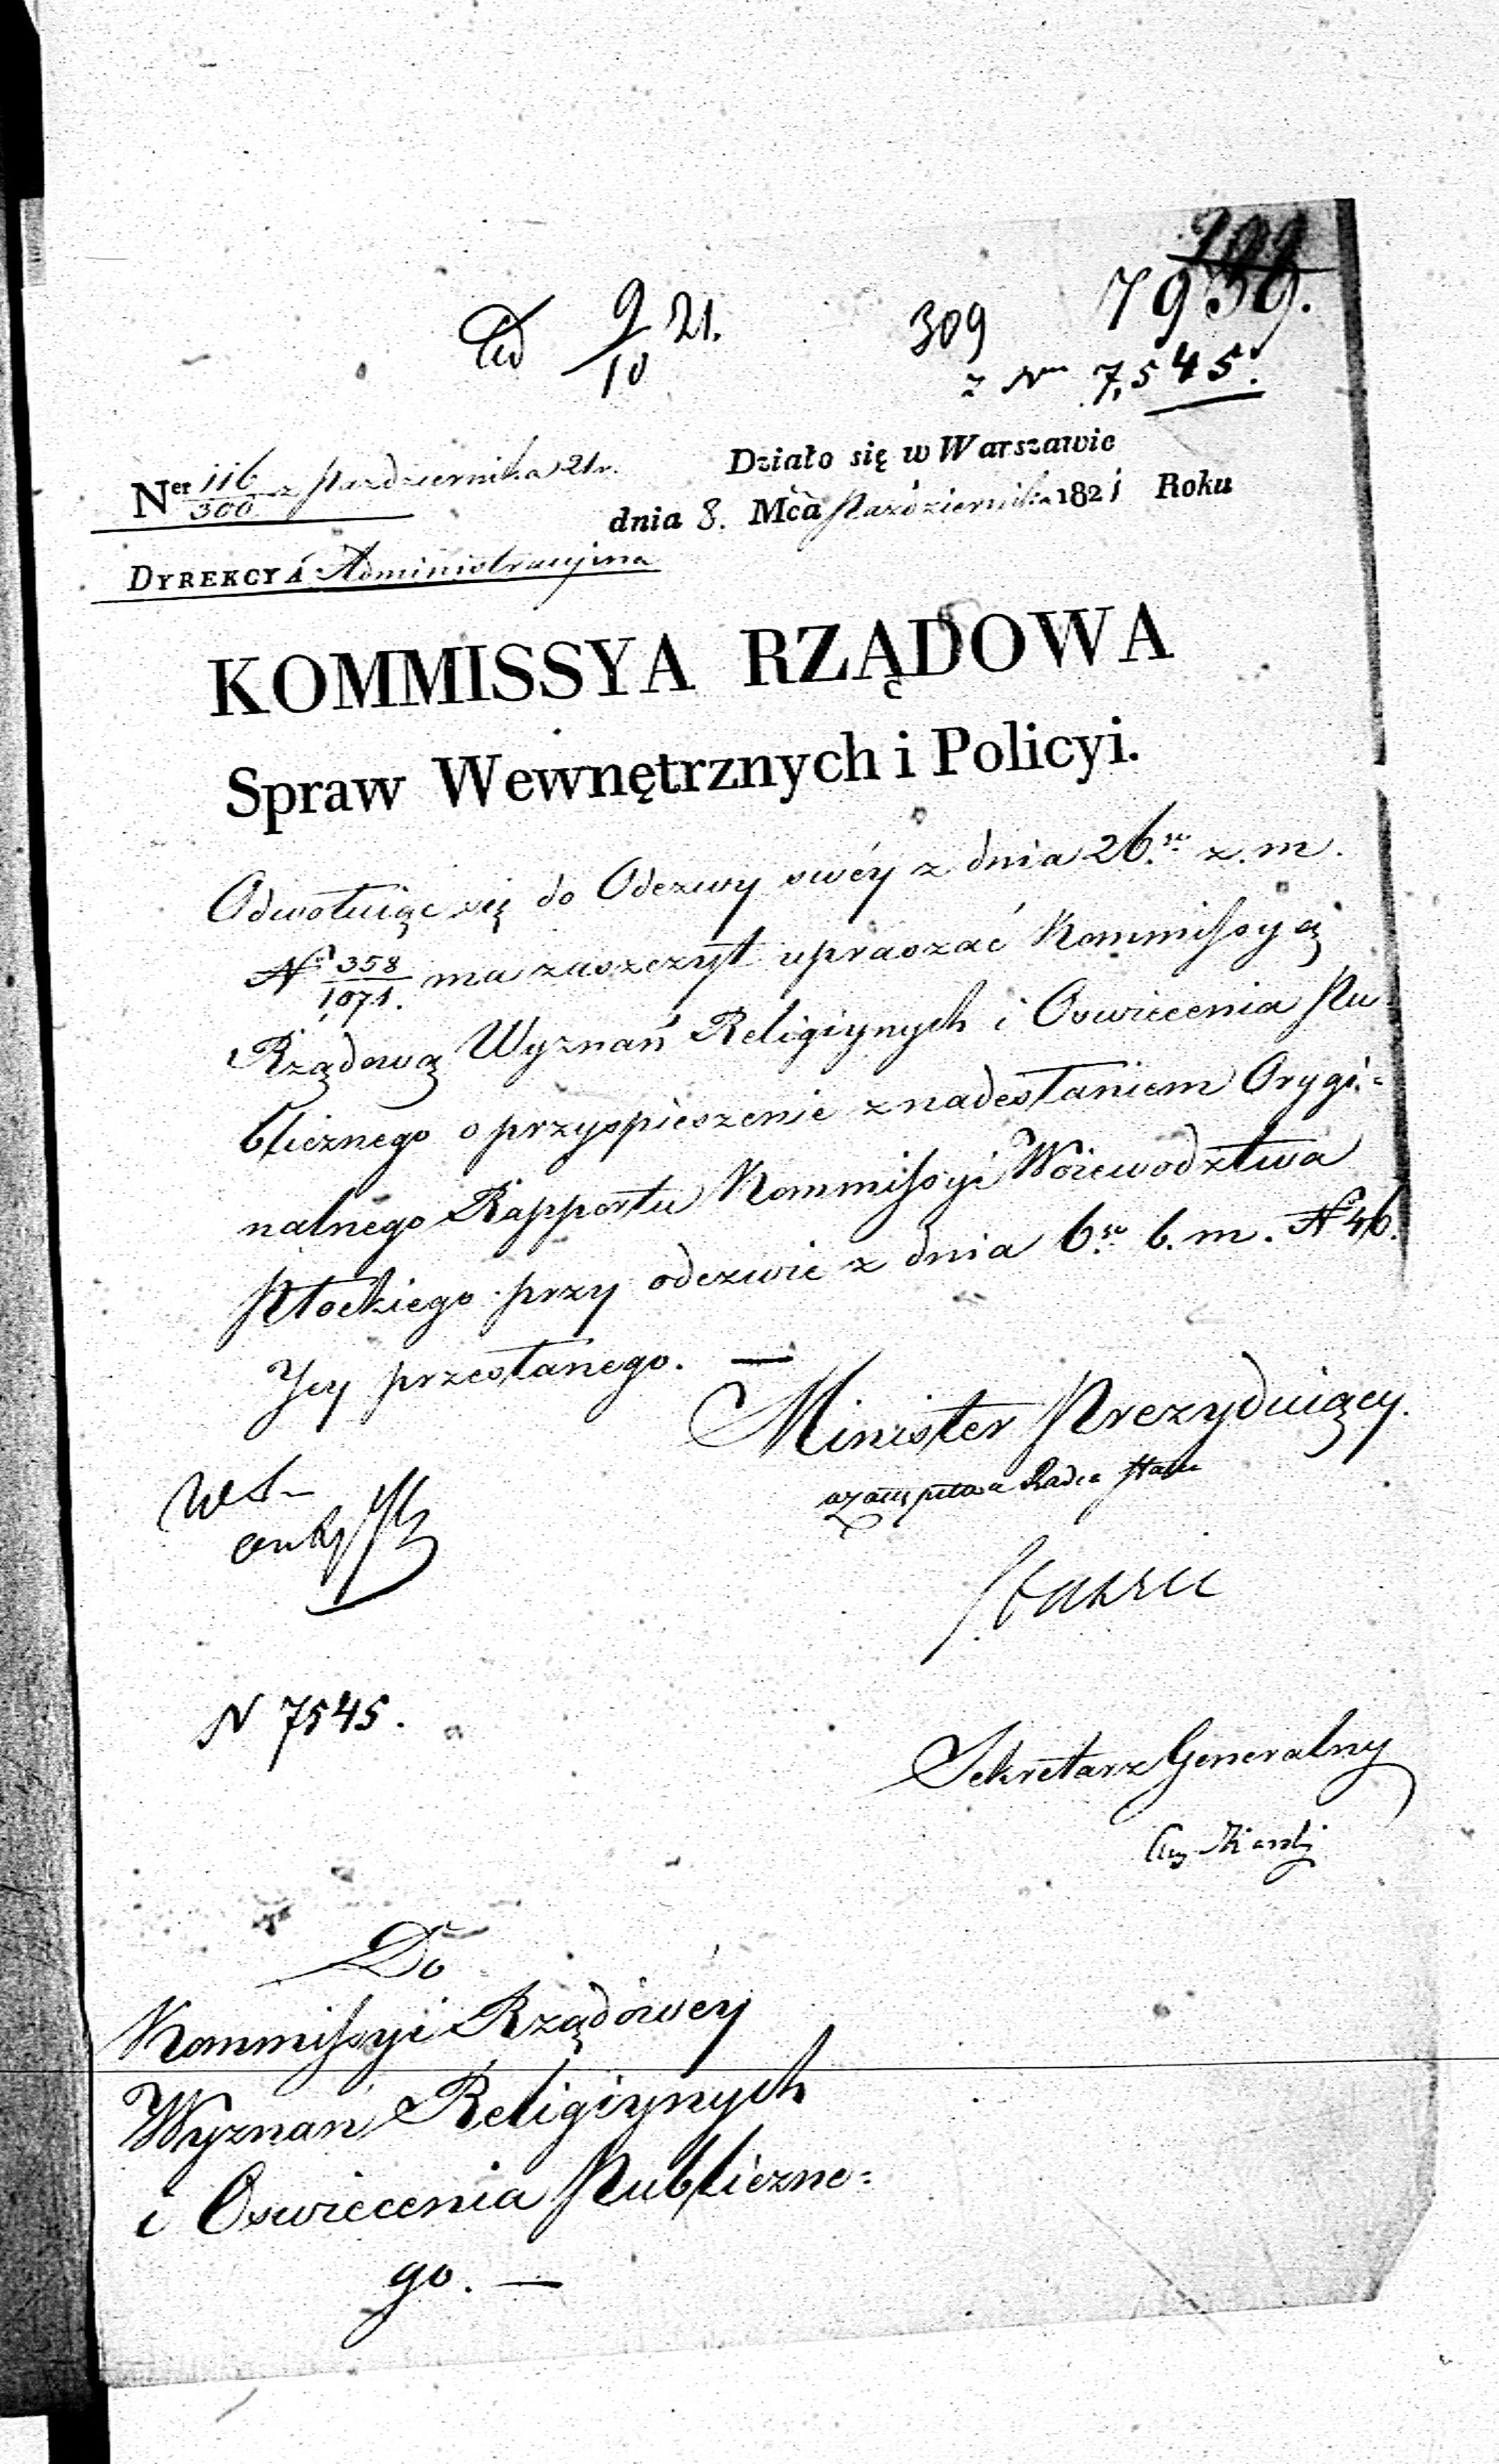 9/10 21.
309
7939.
z Nru 7,545.
Ner 116/300 z Października 21 r.
Działo się w Warszawie
dnia 8. Mca Października 1821 Roku
DYREKCYA Administracyjna
KOMMISSYA RZĄDOWA
Spraw Wewnętrznych i Policyi.
Odwołuiąc się do Odezwy swéy z dnia 26. z. m.
No 358/1,071. ma zaszczyt upraszać Kommissyą
Rządową Wyznań Religiynych i Oswiecenia Pu
blicznego o przyspieszenie z nadesłaniem Orygi=
nalnego Rapportu Kommissyi Woiewodztwa
Płockiego przy odezwie z dnia 6. b. m. No 46.
Jey przesłanego. —
Minister Prezyduiący.
w zastępstwie Radca Stanu
Staszic
N 7545.
Sekretarz Generalny
Do
Kommissyi Rządowéy
Wyznań Religiynych
i Oswiecenia Publiczne=
go. —